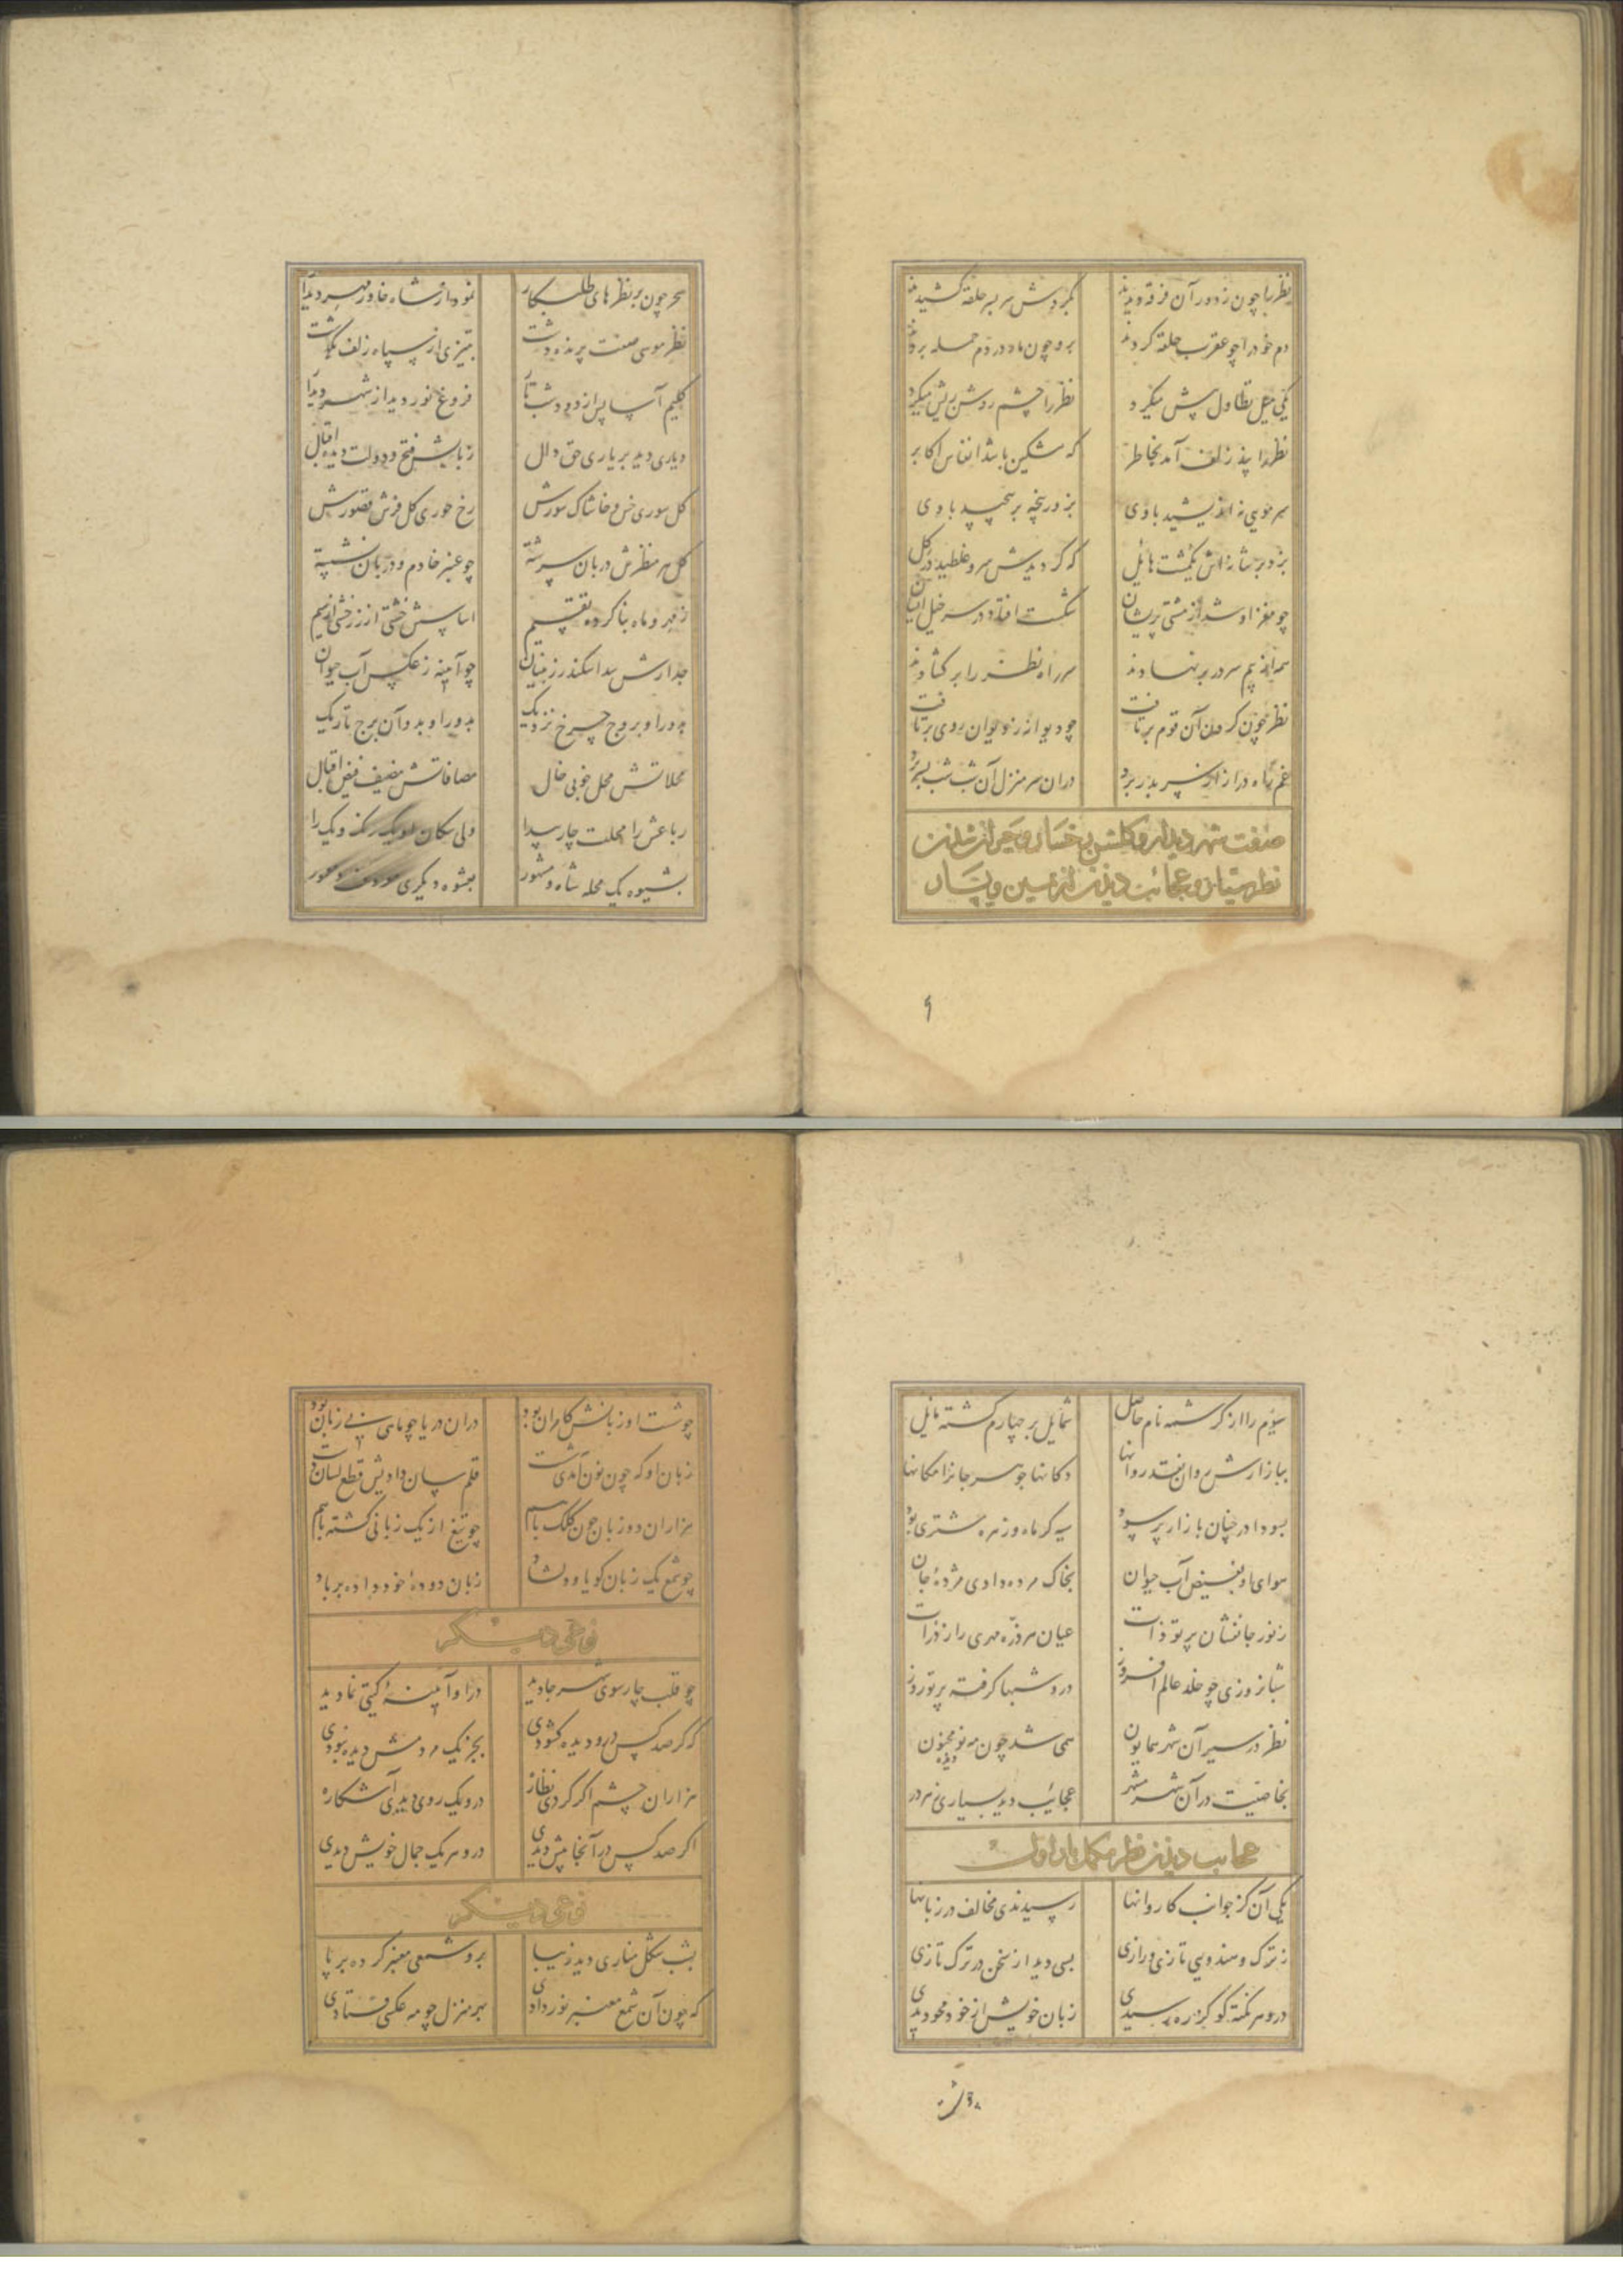 نظر را چون ز دور آن فرقه دیدند بگردش سر بسر حلقه کشیدند
دم خود را چو عقرب حلقه کردند برو چون مار در دم حمله بردند
یکی میل تطاول پیش میکرد نظر را چشم روشن ریش میکرد
نظر را پند زلف آمد بخاطر که مشکین باشد انفاس اکابر
سر مویی نه اندیشید با وی بزور پنجه بر پیچید با وی
بزد بر شانه اش یکمشت هایل که گردیدش سرو غلطید در گل
چو مغز او شد از مشتی پریشان شکست افتاد در سر خیل ایشان
همه از بیم سر در بر نهادند سر راه نظر را بر گشادند
نظر چون گردن آن قوم برتافت چو دیوانه ز دیوان روی برتافت
غم راه دراز از سر بدر برد در آن سر منزل آن شب شب بسر برد
صفت شهر دیدار و گلشن رخسار و حیران شدن
نظر
سحر چون بر نظرهای طلبکار نمودار شاه خاور مهر دیدار
نظر موسی صفت بر
کلیم آسا پس از دود شب تار فروغ نور دید از شهر دیدار
دیاری دید بر یاری حق دال ز بابش فتح و دولت دیده اقبال
گل سوری خس و خاشاک سورش رخ حوری گل فرش قصورش
گل هر منظرش دربان سرشته چو عنبر خادم و دربان نشسته
ز مهر و ماه بنا کرده تقسیم اساسش خشتی از زر خشتی از سیم
جدارش سد اسکندر ز بنیان چو آیینه ز عکس آب حیوان
بدور او بروج چرخ نزدیک بدور او بدو آن برج تاریک
محلاتش محل خوبی خال مضافاتش مضیف فیض اقبال
رباعش را محلت چار پیدا ولی
بشیوه یک محله شاد و مشهور بعشوه دیگری
سیوم را از کرشمه نام حاصل شمایل بر چهارم گشته مایل
ببازارش روان نقد روانها دکانها جوهر جانرا مکانها
بسودا در چنان بازار پر سود سیه گر ماه و زهره مشتری بود
هوای او بفیض آب حیوان بخاک مرده دادی مژده جان
ز نور جانفشان پرتو ذات عیان هر ذره مهری را ز ذرات
شبانروزی چو خلد عالم افروز درو شبها گرفته پرتو روز
نظر در سیر آن شهر همایون همی شد چون مه نو دیده مجنون
بخاصیت در آن شهر مشهر عجایب دید بسیاری
عجایب دیدن نظر
یکی آن کز جوانب کاروانها رسیدندی مخالف در زبانها
ز ترک و هندویی تازی و رازی بسی دید از سخن در ترک تازی
درو هر نکته گو کز ره رسیدی زبان خویش از خود محو دیدی
چو شست او زبانش کامران بود در آن دریا چو ماهی بی زبان بود
زبان او که چون نون آمدی شست قلم سان دادیش قطع لسان دست
هزاران دو زبان چون کلک با سم چو تیغ از یک زبانی گشته با هم
چو شمع یک زبان گویا و دلشاد زبان دوده خود داده بر باد
نوعی دیگر
چو قلب چار سوی شهر جا دید درو آیینه گیتی نما دید
که گر صد کس درو دیده گشودی بجز یک مردمش دیده نبودی
هزاران چشم اگر کردی نظاره درو یک روی دیدی آشکاره
اگر صد کس در آنجا پیش دیدی درو هر یک جمال خویش دیدی
نوعی دیگر
بشب شکل مناری دید زیبا برو شمعی معنبر کرده بر پا
که چون آن شمع معنبر نور دادی بهر منزل چو مه عکسی فتادی